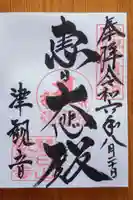 奉拝 令和六年八月二十日
恵日大悲殿
津観音